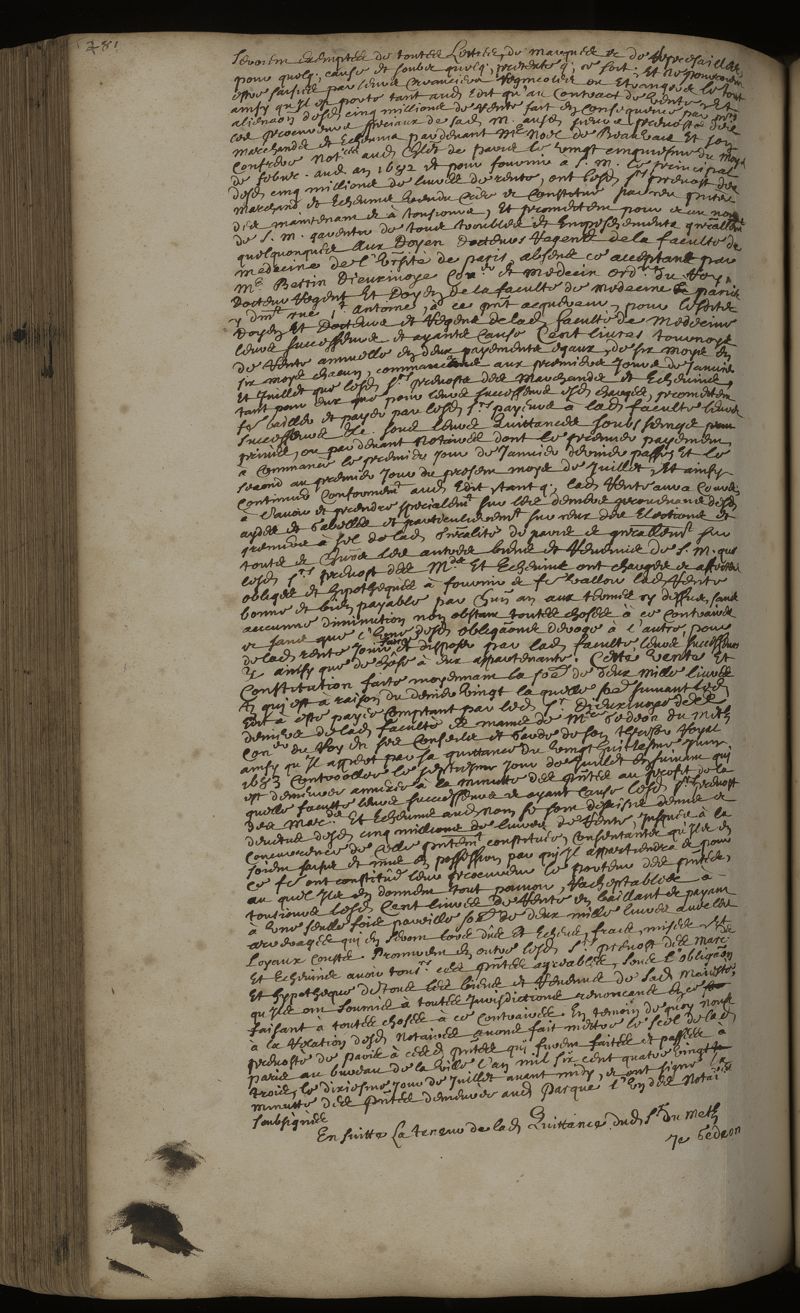 281
seroient exemptée de toutes Lettres de marques et de Represailles
pour quelq. cause et soubz quelq. pretexte q. ce soit, Et ne pourroient
estre saisies par leurs Creanciers Regnicoles ou Estrangers le tout
ainsy qu'il est porté tant aud Edit qu'au Contract de vente et
alienaon desd cinq millions de rente fait en consequence par
les procureurs speciaux de sad M. ausd sieurs prevost des
marchands et Echevins pardevant Me Noel de Beauvais et son
Confrere Notres aud Chlet de paris le vingt cinquiesme du moys
de febvr. aud an 1682 et pour fournir a S. M. le principal
desd cinq millions de livres de rente, ont lesd Srs prevost des
marchans et Echevins vendu créé et constitué par ces pntes
dez maintenant et à tousjours, Et promettent pour et au nom
de S. M. garentir de tous troubles et empeschements gnrallemt
quelquonques Aux Doyen Docteurs Regens de la faculté de
medecine de l'Vrsité de paris, absens ce acceptant par
Me Bertin Dieuxivoye Conr et medecin ordre du Roy
Docteur Regent Et Doyen de la faculté de medecine de paris
y demt rue St antoine, à ce pnt acquereur, pour lesdits
Doyen Et Docteurs et Regens de lad faculté de Medecine
leurs successeurs et ayants cause Cent livres tournoys
de rente annuelle en deux payements egaux, de six moys en
six moys chacun, commenceans aux premiers jours de Janvier
Et Juillet que lesd Srs prevosts des Marchands et Echevins,
tant pour eux que pour leurs successeurs esd charges, promettent
fe bailler et payer par lesd Srs payeurs à lad faculté leurs
successeurs &c. sous leurs Quittances soubs seings
privés, ou pardevant Notaires dont le premier payement
a commancé le premier jour de Janvier dernier passé, Et le
second au premier jour du present moys de Juillet, Et ainsy
continuer conformemt aud Edit, tant q. lad Rente aura cours
à l'avoir et prendre specialemt sur les deniers provenans desd
aydes et Gabelles et particulieremt sur ceux des Elections et
greniers à sel de lad gnralité de paris et gnrallemt sur
toutes et chunes les autres biens et revenus de S. M. que
lesd Srs prevost des Mds Et Echevins ont chargés et affectés
obligés et hypothequés à fournir et fe valloir lad Rente
bonne et bien payable par chun an aux termes cy dessus, sans
aucune diminution non obstant toutes choses à ce contraires
et sans que l'une desd obligaons deroge à l'autre, pour
de lad rente jouir et disposer par lad faculté leurs successeurs
&c ainsy que de chose à eux appartenante. Cette vente Et
Constitution faite moyennant la soe de deux mille livres
Et qui est a raison du denier vingt la quelle soe suivant led
Edit a esté payée comptant par led Sr Dieuxivoye des
deniers de lad faculté es mains de Me Gedeon du Metz
Conr du Roy en ses conseils et Garde de son Thresor Royal
ainsy qu'il appert par sa quittance du vingt huitiesme Juin
1683 controollée le septiesme jour de Juillet ensuivant qui
est demeurée annexée à la minutte des pntes au proffit de la
quelle faculté leurs successeurs et ayans cause lesd Srs prevost
des Marcds Et Echevins aud nom se sont desaisis demis et
devestus desd cinq millions de livres de rente jusques à la
concurrence de celle pntemt constituée, consentants qu'ils en
soient saisis et mis en possession par qu'il appartiendra et pour
ce fe ont constitué leur procureur le porteur des pntes,
au quel ils en donnent tout pouvoir, Racheptables à
tousjours lesd Cent livres de Rente en baillant et payant
à une seulle fois pareille soe de deux mille livres avec les
arrerages qui en seront lors dus Et echeus, frais, mises, et
Loyaux cousts. Promettent en outre lesd Srs prevost des Marcds
Et Echevins avoir tousrs ces pntes agreables, sous l'obligaon
Et hypotheque de tous les biens et revenus de sad Majesté,
qu'ils ont soumis à toutes Jurisdictions renonceans en ce
faisant a toutes choses à ce contraires. En temoin de quoy nous
à la relation desd Notaires avons fait mettre le scel de lad
prevosté de paris à cesd pntes qui furent faites et passées à
paris au bureau de la ville l'an mil six cent quatre vingt
trois, le dixiesme jour de Juillet avant midy, et ont signé la
minutte des pntes demeurée aud Parque l'un des Notaires
soubsignés
En suitte La teneur de lad Quittance dud Sr du Metz
Je Gedeon